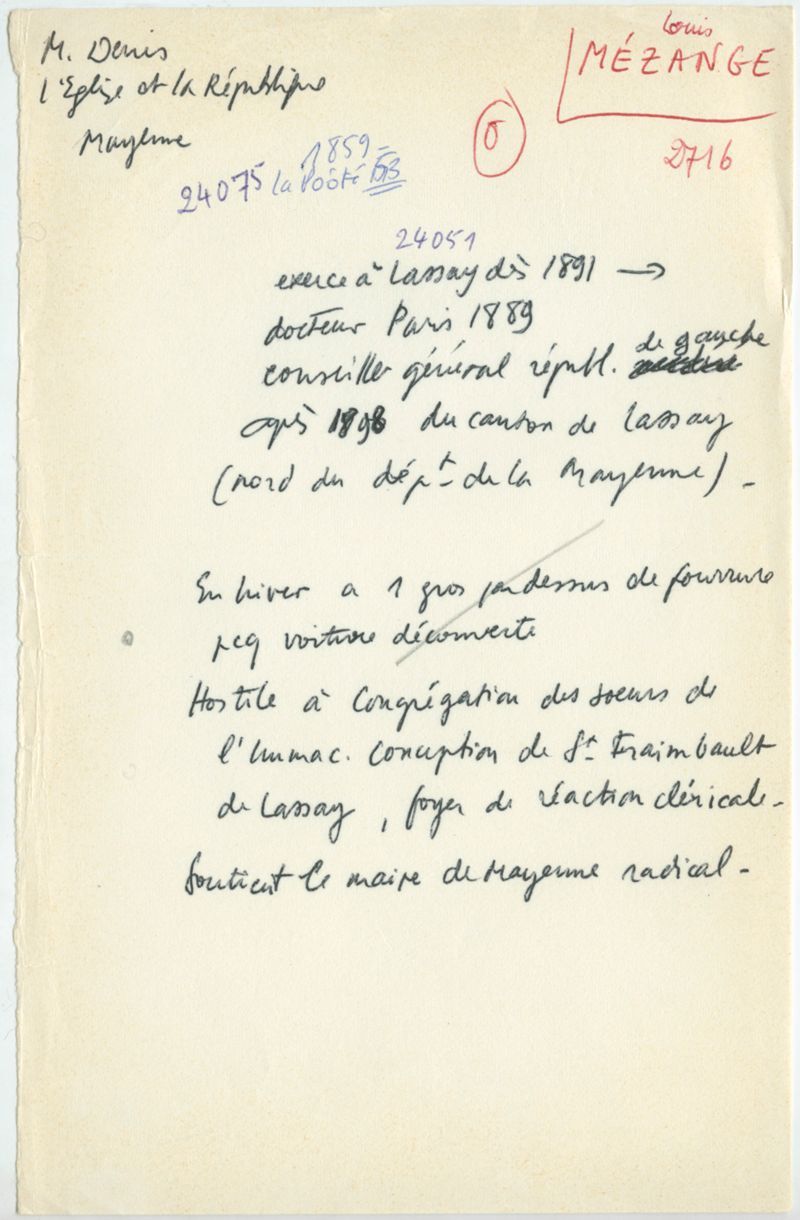 M. Denis
l'Eglise et la République
Mayenne
Louis
MÉZANGE
σ
2716
1859-
24075 la Pôôté 53
24051
exerce à Lassay dès 1891 →
docteur Paris 1889
conseiller général républ. de gauche
après 1898 du canton de Lassay
(nord du dépt de la Mayenne) -
En hiver a 1 gros pardessus de fourrure
pcq voiture découverte
Hostile à Congrégation des soeurs de
l'Immac. Conception de St Fraimbault
de Lassay, foyer de réaction cléricale-
Soutient le maire de Mayenne radical-